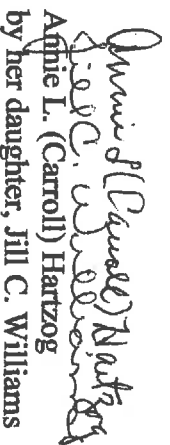 Annie L (Carroll) Hartzog
Jill C. Williams
Annie L. (Carroll) Hartzog
by her daughter, Jill C. Williams